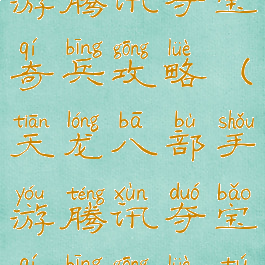 游腾讯夺宝
qí bīng gōng lüè
奇兵攻略（
tiān lóng bā bù shǒu
天龙八部手
yóu téng xùn duó bǎo
游腾讯夺宝
qí bīng gōng lüè